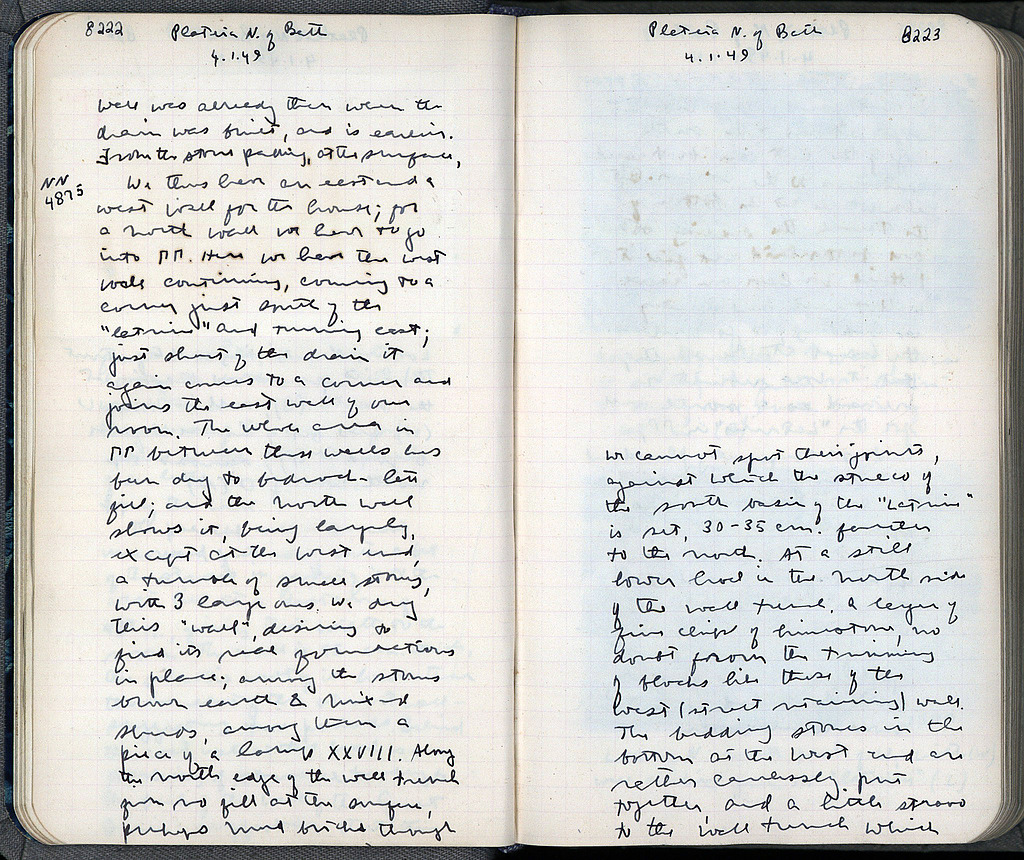 8222 Plateia N. of Bath
4.1.49
well was already there when the
drain was built, and is earlier.
From the stone packing, at the surface,
NN
4875
We thus have an east and a
west wall for the house; for
a north wall we have to go
into ΠΠ. Here we have the west
wall continuing, coming to a
corner just south of the
"latrine" and running east;
just short of the drain it
again comes to a corner and
joins the east wall of our
room. The whole area in
ΠΠ between these walls has
been dug to bedrock - late
fill; and the north wall
shows it, being largely,
except at the west end,
a tumble of small stones,
with 3 large ones. We dug
this "wall", desiring to
find its real foundations
in place; among the stones
brown earth & mixed
sherds, among them a
piece of a lamp XXVIII. Along
the north edge of the wall trench
firm fill at the surface,
perhaps mud bricks though
Plateia N. of Bath 8223
4.1.49
we cannot spot their joints,
against which the stucco of
the south basin of the "Latrine"
is set, 30-35 cm. farther
to the north. At a still
lower level in the north side
of the wall trench, a layer of
fine chips of limestone, no
doubt from the trimming
of blocks like those of the
west (street retaining) wall.
The bedding stones in the
bottom at the west end are
rather carelessly put
together, and a little
to the wall trench which